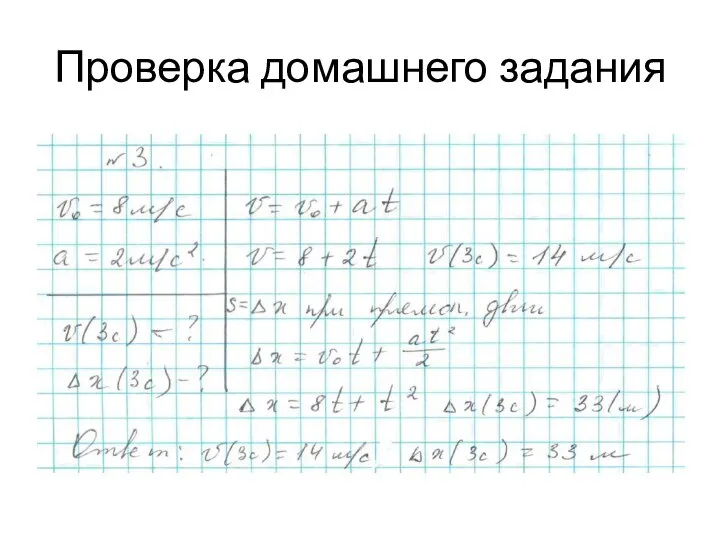 Проверка домашнего задания
№ 3.
v₀ = 8 м/с
a = 2 м/с².
v(3с) – ?
Δx(3с) – ?
v = v₀ + at
v = 8 + 2t v(3с) = 14 м/с
S = Δx при прямол. движ
Δx = v₀t + at²/2
Δx = 8t + t² Δx(3с) = 33(м)
Ответ: v(3с) = 14 м/с, Δx(3с) = 33 м